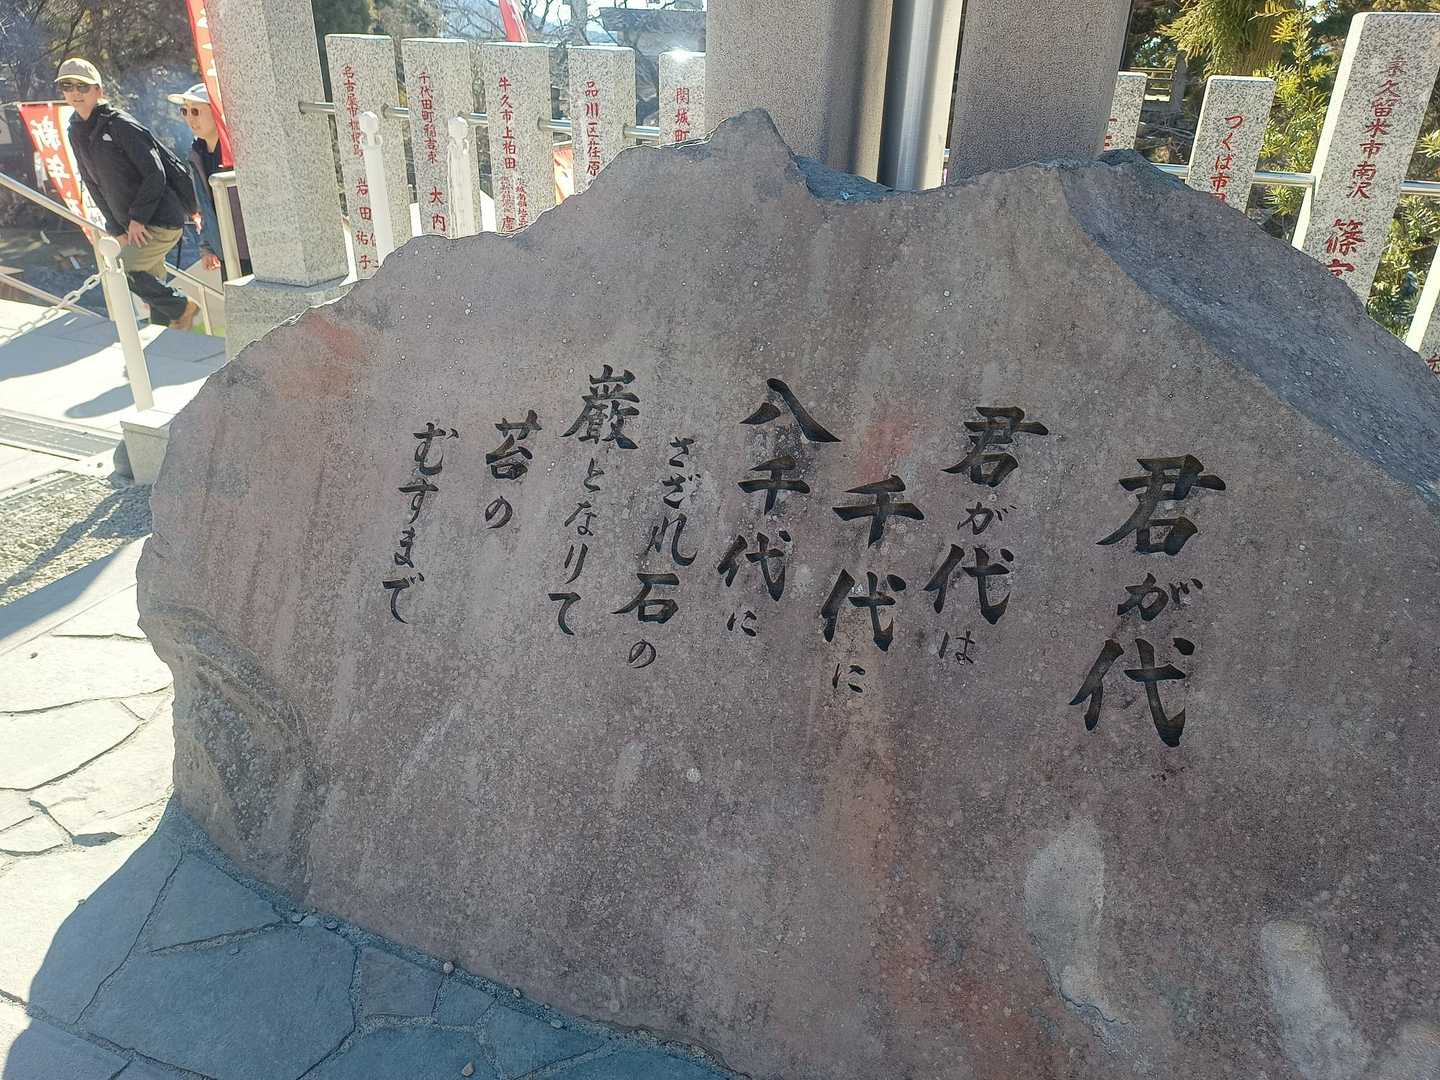 君が代
君が代は
千代に
八千代に
さざれ石の
巌となりて
苔の
むすまで
新年
名古屋市
岩田祐子
千代田町稲吉東
大内
牛久市上柏田
品川区荏原
関城町
つくば市
東久留米市南沢
篠